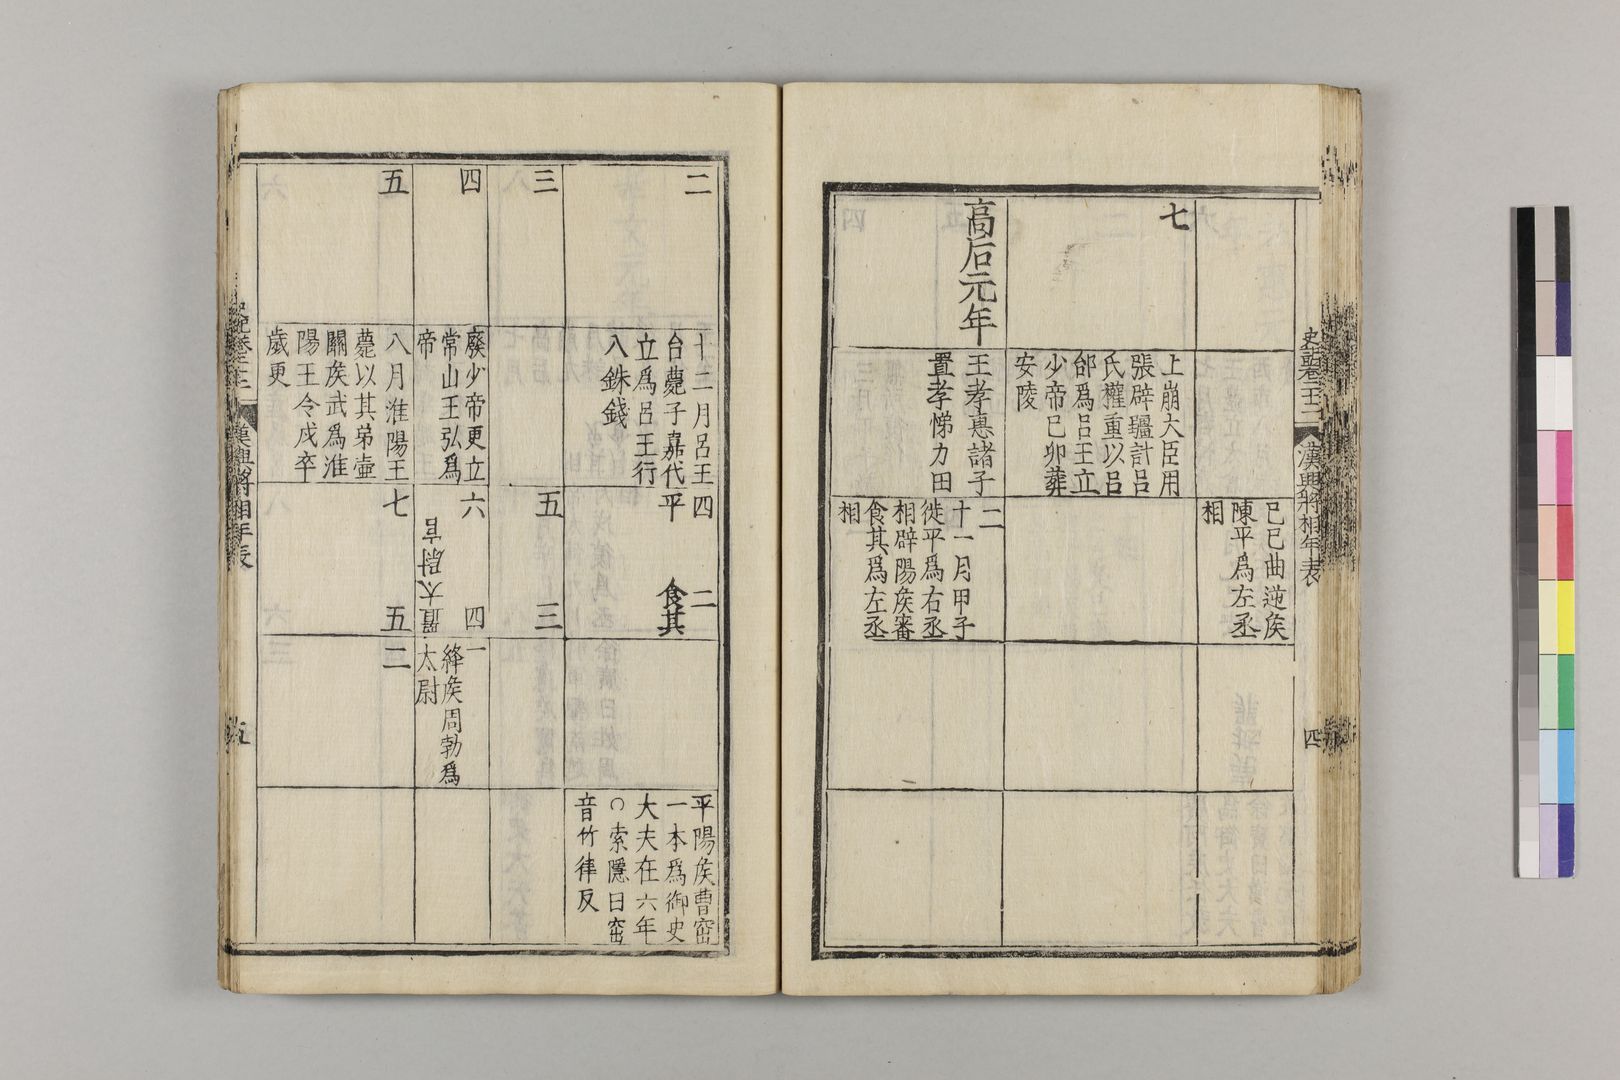 史記卷二十二
漢興將相年表
四
己巳曲逆矦
陳平爲左丞
相
七
上崩大臣用
張辟疆計呂
氏權重以呂
台爲呂王立
少帝己卯葬
安陵
高后元年
王孝惠諸子
置孝悌力田
二
十一月甲子
徙平爲右丞
相辟陽矦審
食其爲左丞
相
二
十二月呂王
台薨子嘉代
立爲呂王行
八銖錢
四
平
二
食其
平陽矦曹窋
一本爲御史
大夫在六年
○索隱曰窋
音竹律反
三
五
三
四
廢少帝更立
常山王弘爲
帝
六
四
置太尉官
一
絳矦周勃爲
太尉
五
八月淮陽王
薨以其弟壷
關矦武爲淮
陽王令戍卒
歲更
七
五
二
史記卷二十二
漢興將相年表
五